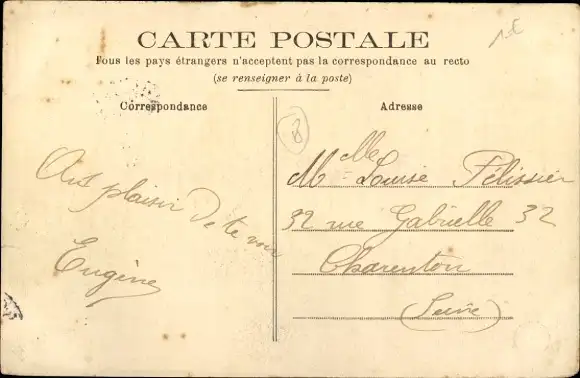 1 €
CARTE POSTALE
Tous les pays étrangers n'acceptent pas la correspondance au recto
(se renseigner à la poste)
Correspondance
Au plaisir de te voir
Eugène
Adresse
8
Mlle Louise Pélissier
32 rue Gabrielle 32
Charenton
(Seine)